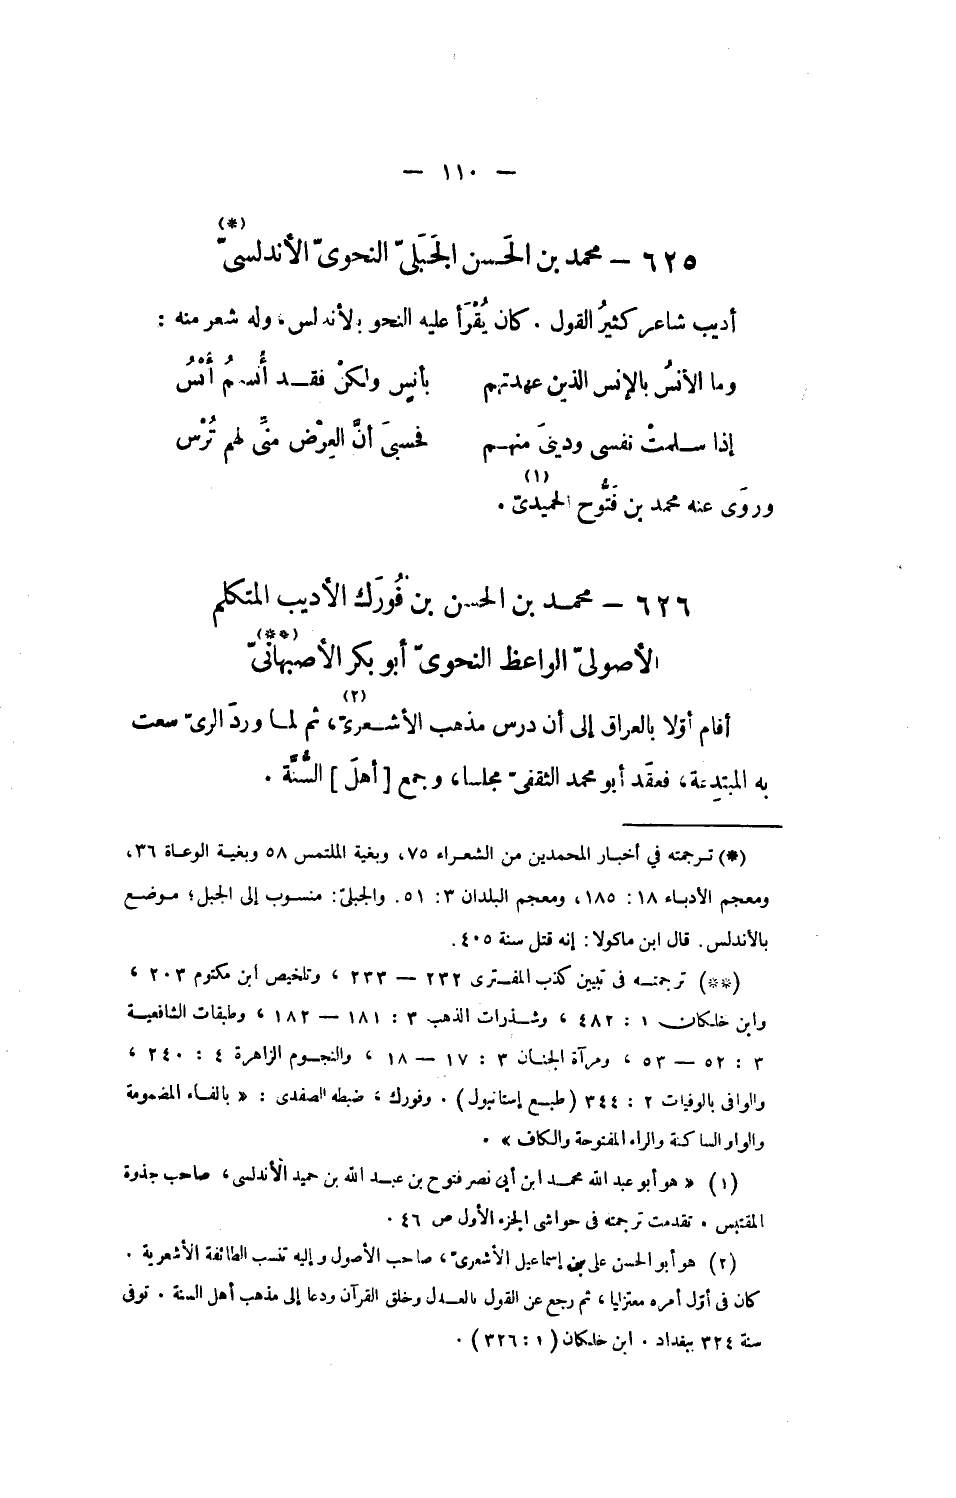 — ١١٠ —
٦٢٥ — محمد بن الحَسن الجَبَلىّ النحوىّ الأندلسىّ (*)
أديب شاعر كثيرُ القول . كان يُقْرَأ عليه النحو بالأندلس، وله شعر منه :
وما الأنسُ بالإنس الذين عهدتهم بأنسٍ ولكنْ فقــد أُنسهمُ أُنْسُ
إذا ســلمتْ نفسى ودينىَ منهــم فحسبىَ أنَّ العِرْض منِّى لهم تُرْس
وروَى عنه محمد بن فَتُّوح الحميدىّ (١) .
٦٢٦ — محمــد بن الحسن بن فُورَك الأديب المتكلم
الأصولىّ الواعظ النحوىّ أبو بكر الأصبهانىّ (**)
أقام أوّلا بالعراق إلى أن درس مذهب الأشــعرىّ (٢)، ثم لمــا وردَ الرىّ سعت
به المبتدِعة، فعقَد أبو محمد الثقفىّ مجلسا، وجمع [أهلَ] السُّنَّة .
(*) تــرجمته في أخبــار المحمدين من الشعــراء ٧٥، وبغية الملتمس ٥٨ وبغيــة الوعــاة ٣٦،
ومعجم الأدبــاء ١٨ : ١٨٥، ومعجم البلدان ٣: ٥١. والجبلىّ: منســوب إلى الجبل؛ مــوضــع
بالأندلس. قال ابن ماكولا: إنه قتل سنة ٤٠٥.
(**) ترجمتــه فى تبيين كذب المفــترى ٢٣٢ — ٢٣٣ ، وتلخيص ابن مكتوم ٢٠٣ ،
وابن خلكان ١ : ٤٨٢ ، وشــذرات الذهب ٣ : ١٨١ — ١٨٢ ، وطبقات الشافعيــة
٣ : ٥٢ — ٥٣ ، ومرآة الجنــان ٣ : ١٧ — ١٨ ، والنجــوم الزاهرة ٤ : ٢٤٠ ،
والوافى بالوفيات ٢ : ٣٤٤ (طبــع إستانبول) . وفورك ، ضبطه الصفدى : « بالفــاء المضمومة
والواو الساكنة والراء المفتوحة والكاف » .
(١) « هو أبو عبد الله محمــد ابن أبى نصر فتوح بن عبــد الله بن حميد الأندلسى ، صاحب جذوة
المقتبس . تقدمت ترجمته فى حواشى الجزء الأول ص ٤٦ .
(٢) هو أبو الحسن على بن إسماعيل الأشعرىّ ، صاحب الأصول وإليه تنسب الطائفة الأشعرية .
كان فى أوّل أمره معتزليا ، ثم رجع عن القول بالعــدل وخلق القرآن ودعا إلى مذهب أهل السنة . توفى
سنة ٣٢٤ ببغداد . ابن خلكان (١ : ٣٢٦) .